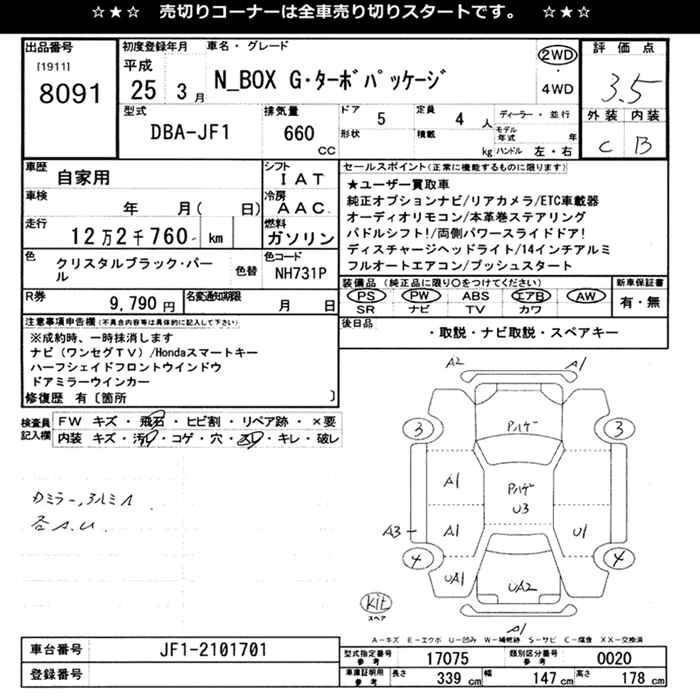 ☆★☆ 売切りコーナーは全車売り切りスタートです。 ☆★☆
出品番号
[1911]
8091
初度登録年月
平成
25 3月
車名・グレード
N_BOX G・ターボパッケージ
2WD
・
4WD
評価点
3.5
外装 内装
C B
型式
DBA-JF1
排気量
660
CC
ドア 5
形状
定員 4 人
積載 kg
ディーラー・並行
モデル年式 年
ハンドル 左・右
車歴
自家用
シフト
IAT
車検
年 月( 日)
冷房
AAC
走行
12万2千760 km
燃料
ガソリン
色
クリスタルブラック・パール
色替
色コード
NH731P
R券
9,790 円
名変通知期限
月 日
セールスポイント(正常に機能するものに限ります)
★ユーザー買取車
純正オプションナビ/リアカメラ/ETC車載器
オーディオリモコン/本革巻ステアリング
パドルシフト!/両側パワースライドドア!
ディスチャージヘッドライト/14インチアルミ
フルオートエアコン/プッシュスタート
装備品(純正品に限り○をつけてください)
PS PW ABS エアB AW
SR ナビ TV カワ
新車保証書
有・無
後日品
・取説・ナビ取説・スペアキー
注意事項申告欄(不具合内容等は具体的に記入して下さい)
※成約時、一時抹消します
ナビ(ワンセグTV)/Hondaスマートキー
ハーフシェイドフロントウインドウ
ドアミラーウインカー
修復歴 有〔箇所 〕
検査員記入欄
FW キズ・飛石・ヒビ割・リペア跡・×要
内装 キズ・汚れ・コゲ・穴・スレ・キレ・破レ
A2 A1
3 3
パハゲ
A1
パハゲ
U3
A3 A1 U1
4 4
UA1 UA2
Kit
スペア
A1
A−キズ E−エクボ U−凹み W−補修跡 S−サビ C−腐食 XX−交換済
車台番号
JF1-2101701
登録番号
型式指定番号
参考
17075
類別区分番号
参考
0020
車庫証明用
参考
長さ 339 cm
幅 147 cm
高さ 178 cm